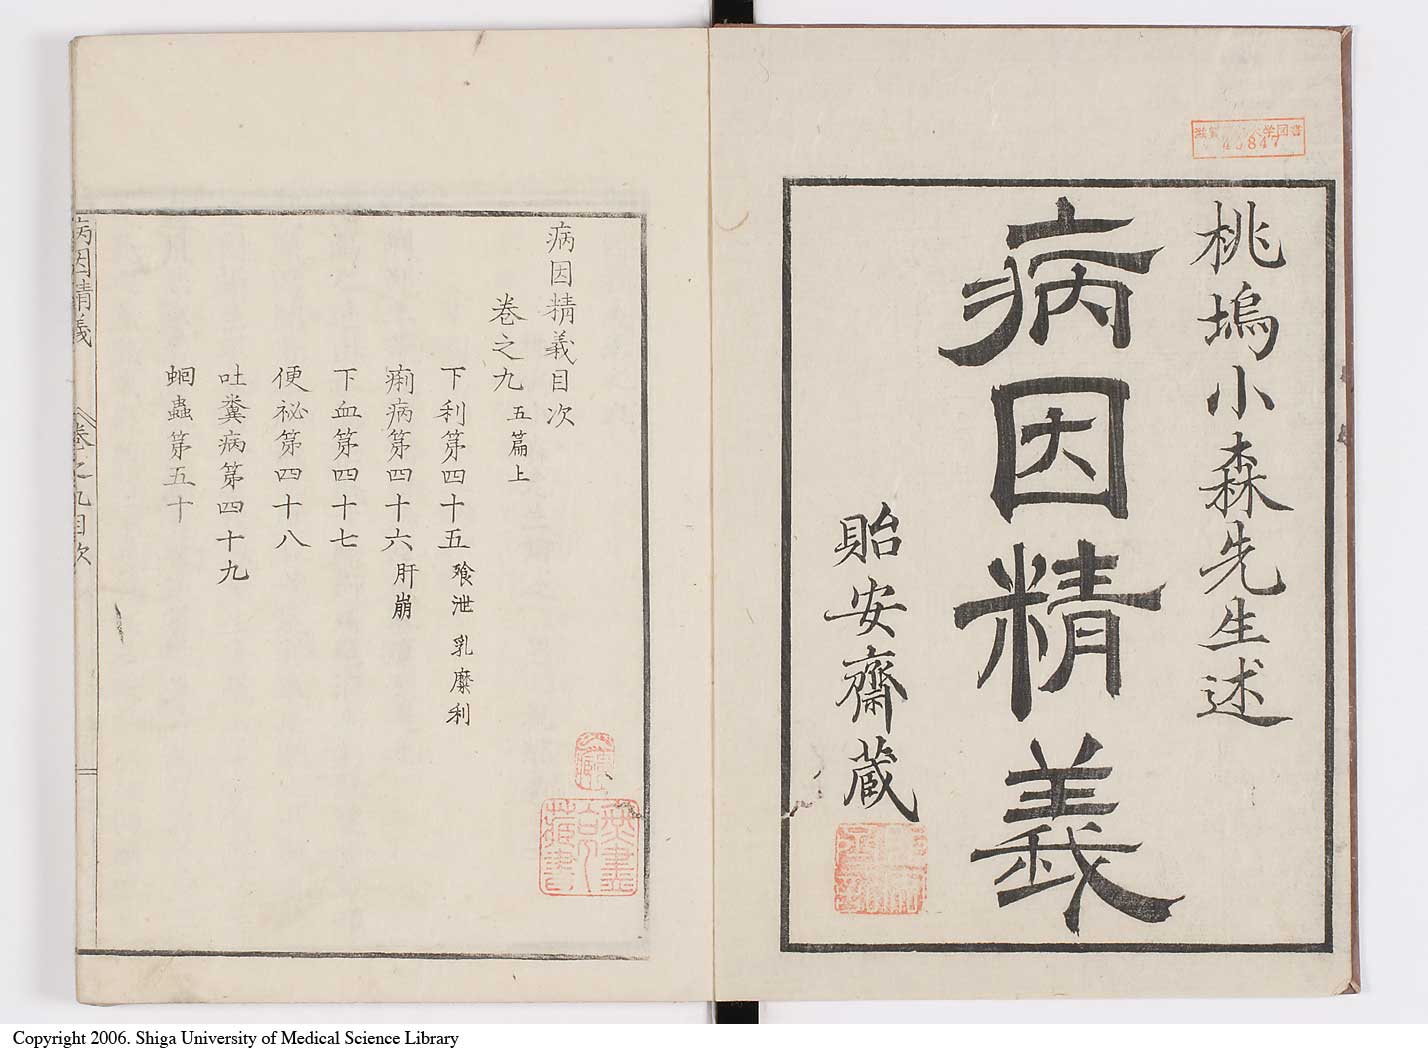 桃塢小森先生述
病因精義
貽安齋蔵
病因精義目次
巻之九 五篇上
下利第四十五 飱泄 乳糜利
痢病第四十六 肝崩
下血第四十七
便祕第四十八
吐糞病第四十九
蛔蟲第五十
病因精義 巻之九目次
Copyright 2006. Shiga University of Medical Science Library